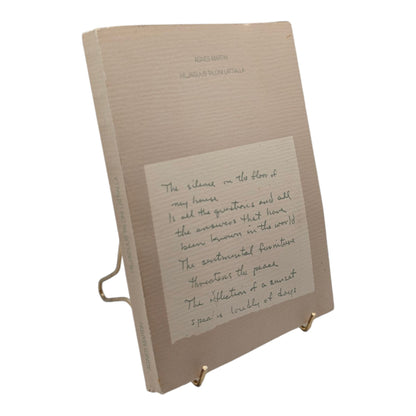 AGNES MARTIN
HILJAISUUS TALONI LATTIALLA
The silence on the floor of
my house
Is all the questions and all
the answers that have
been known in the world
The sentimental furniture
threatens the peace
The reflection of a sunset
speaks loudly of days